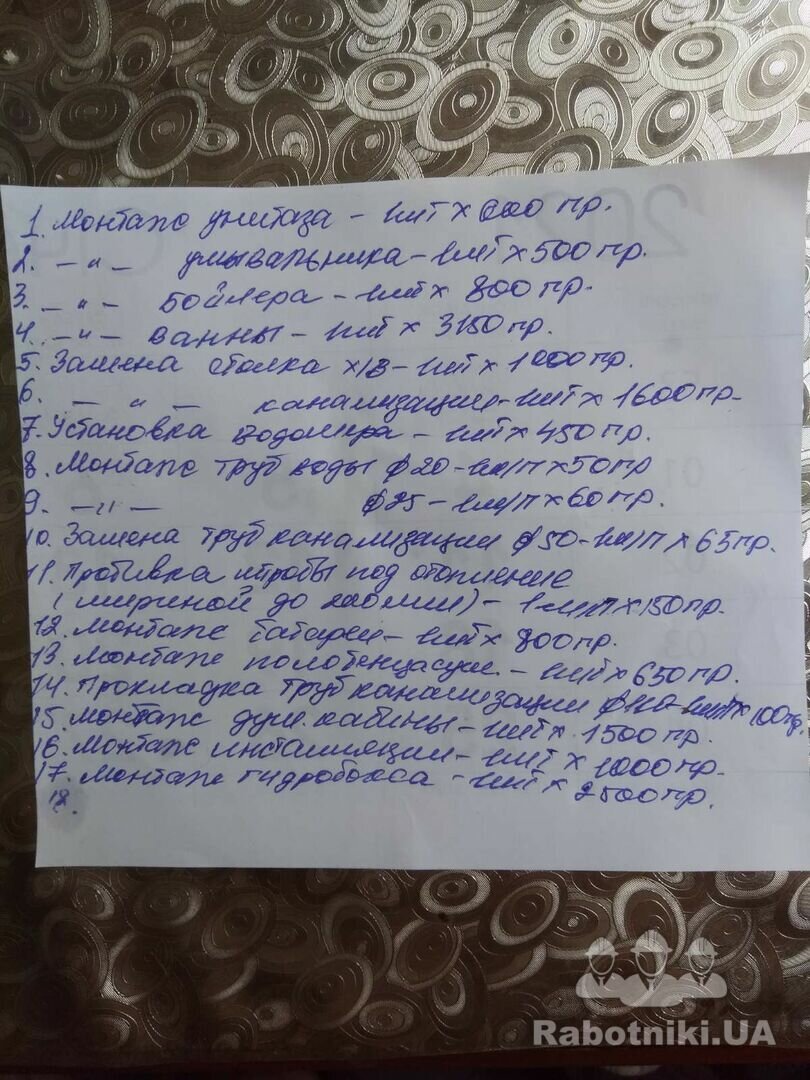 1. Монтаж унитаза - 1шт х 600 гр.
2. - " - умывальника - 1шт х 500 гр.
3. - " - Бойлера - 1шт х 800 гр.
4. - " - ванны - 1шт х 3150 гр.
5. Замена стояка х/в - 1шт х 1000 гр.
6. - " - канализации - 1шт х 1600 гр.
7. Установка водомера - 1шт х 450 гр.
8. Монтаж труб воды ф20 - 1м/п х 50 гр
9. - " - ф25 - 1м/п х 60 гр.
10. Замена труб канализации ф50 - 1м/п х 65 гр.
11. Пробивка штробы под отопление
( шириной до мм) - 1м/п х 150 гр.
12. Монтаж батареи - 1шт х 800 гр.
13. Монтаж полотенцесуш. - 1шт х 650 гр.
14. Прокладка труб канализации ф110 - х 100 гр.
15. Монтаж душ. кабины - 1шт х 1500 гр.
16. Монтаж инсталляции - 1шт х 1000 гр.
17. Монтаж гидробокса - 1шт х 2500 гр.
18.
Rabotniki.UA